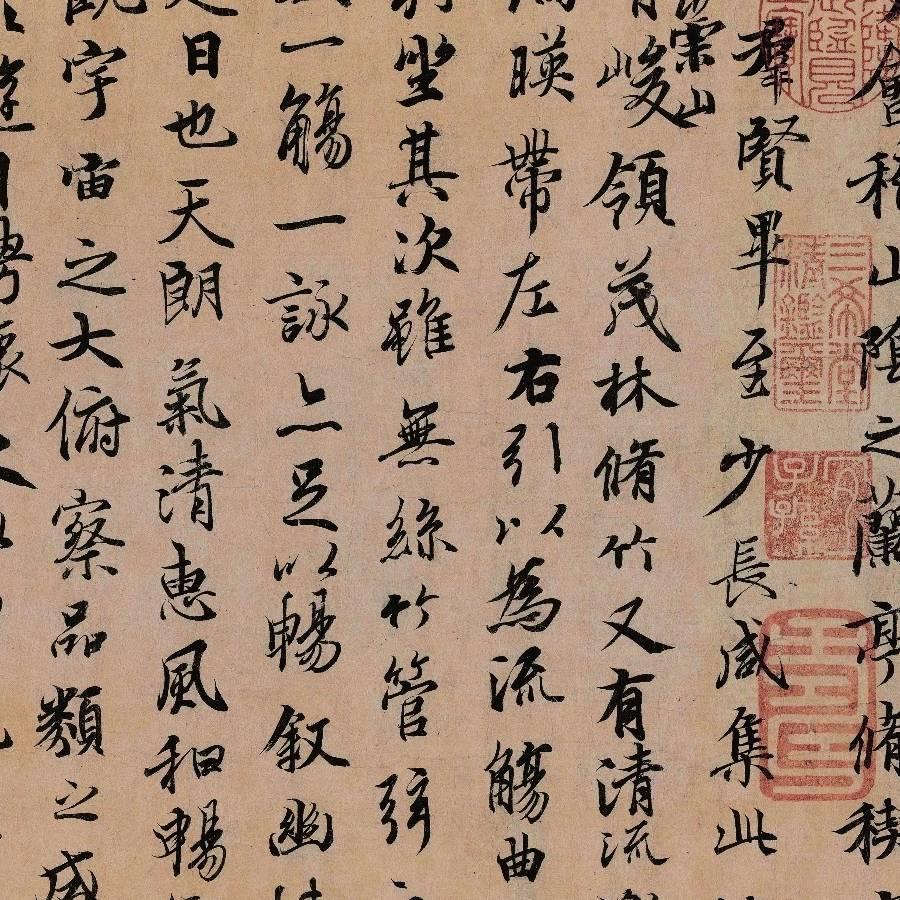 會稽山陰之蘭亭脩稧
羣賢畢至少長咸集此
崇山
有峻領茂林脩竹又有清流
暎帶左右引以為流觴曲
坐其次雖無絲竹管弦
一觴一詠亦足以暢叙幽
日也天朗氣清惠風和暢
宇宙之大俯察品類之盛
遊目騁懷
三希堂精鑑璽
宜子孫